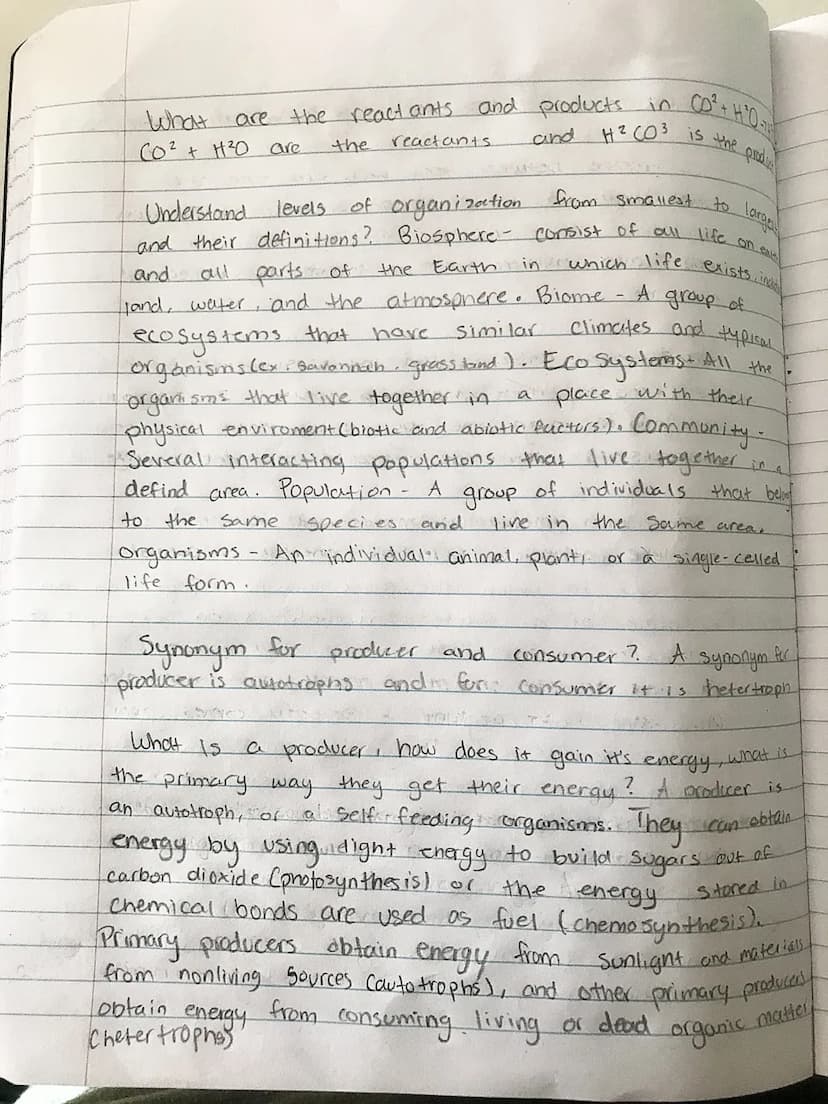 What are the reactants and products in CO² + H²O →
CO² + H²O are the reactants and H²CO³ is the produ
Understand levels of organization from smallest to larges
and their definitions? Biosphere - consist of all life on
and all parts of the Earth in which life exists,
land, water, and the atmosphere. Biome - A group of
ecosystems that have similar climates and typical
organisms (ex. Savannah, grassland). Eco Systems - All the
organisms that live together in a place with their
physical enviroment (biotic and abiotic factors). Community -
Several interacting populations that live together in a
defind area. Population - A group of individuals that belong
to the same species and live in the same area.
organisms - An individual animal, plant, or a single-celled
life form.
Synonym for producer and consumer? A synonym for
producer is autotrophs and for consumer it is hetertroph
What is a producer, how does it gain it's energy, what is
the primary way they get their energy? A producer is
an autotroph, or a self feeding organisms. They can obtain
energy by using light energy to build sugars out of
carbon dioxide (photosynthesis) or the energy stored in
chemical bonds are used as fuel (chemosynthesis).
Primary producers obtain energy from sunlight and materials
from nonliving sources (autotrophs), and other primary producers
obtain energy from consuming living or dead organic matter
(hetertrophs)